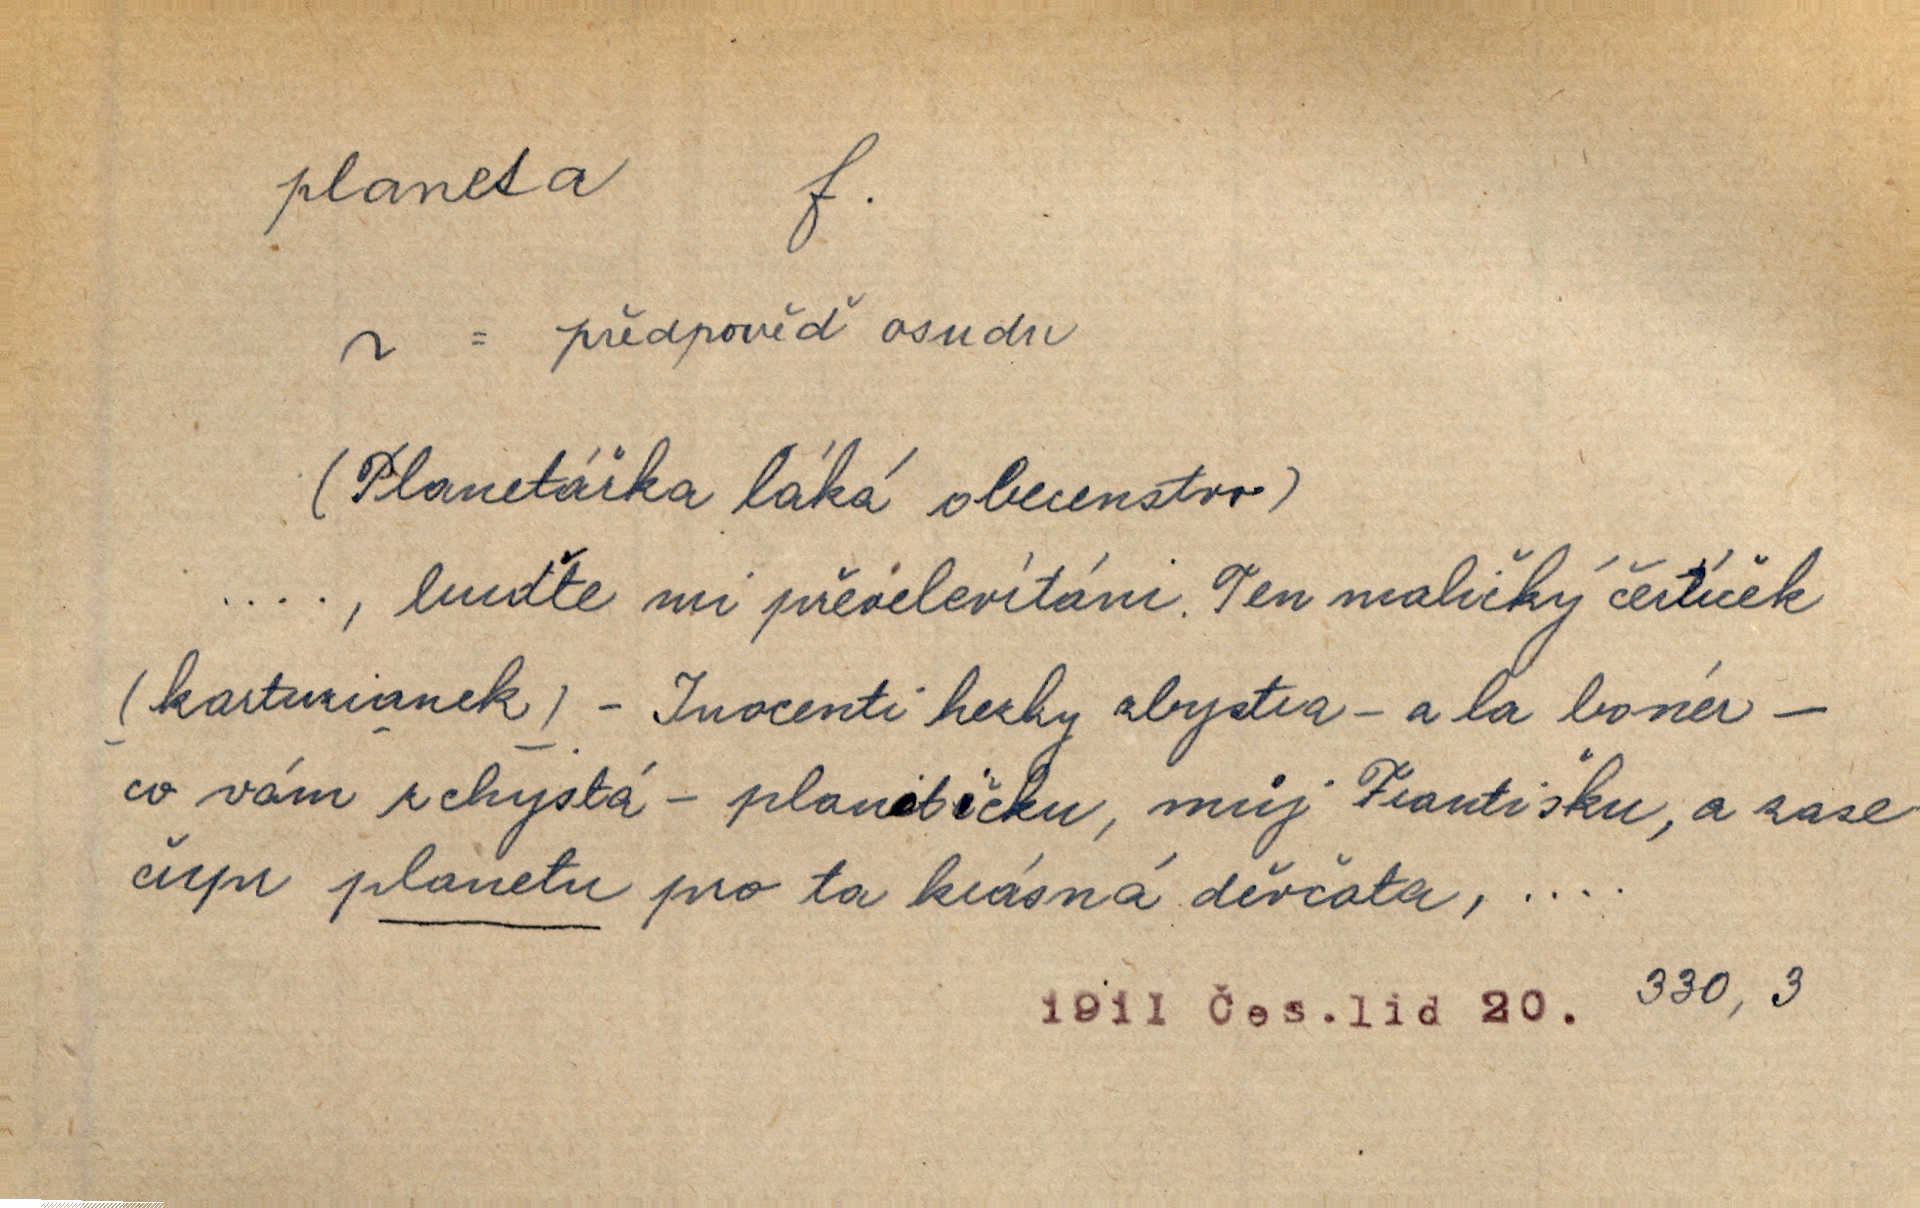 planeta f.
~ = předpověď osudu
(Planetářka láká obecenstvo)
...., buďte mi převelevítáni. Ten maličký čertíček
(kartuzianek) – Inocenti hezky zbystra – a la bonér –
co vám zchystá – planetičku, můj Františku, a zase
čupr planetu pro ta krásná děvčata, ....
1911 Čes.lid 20. 330, 3